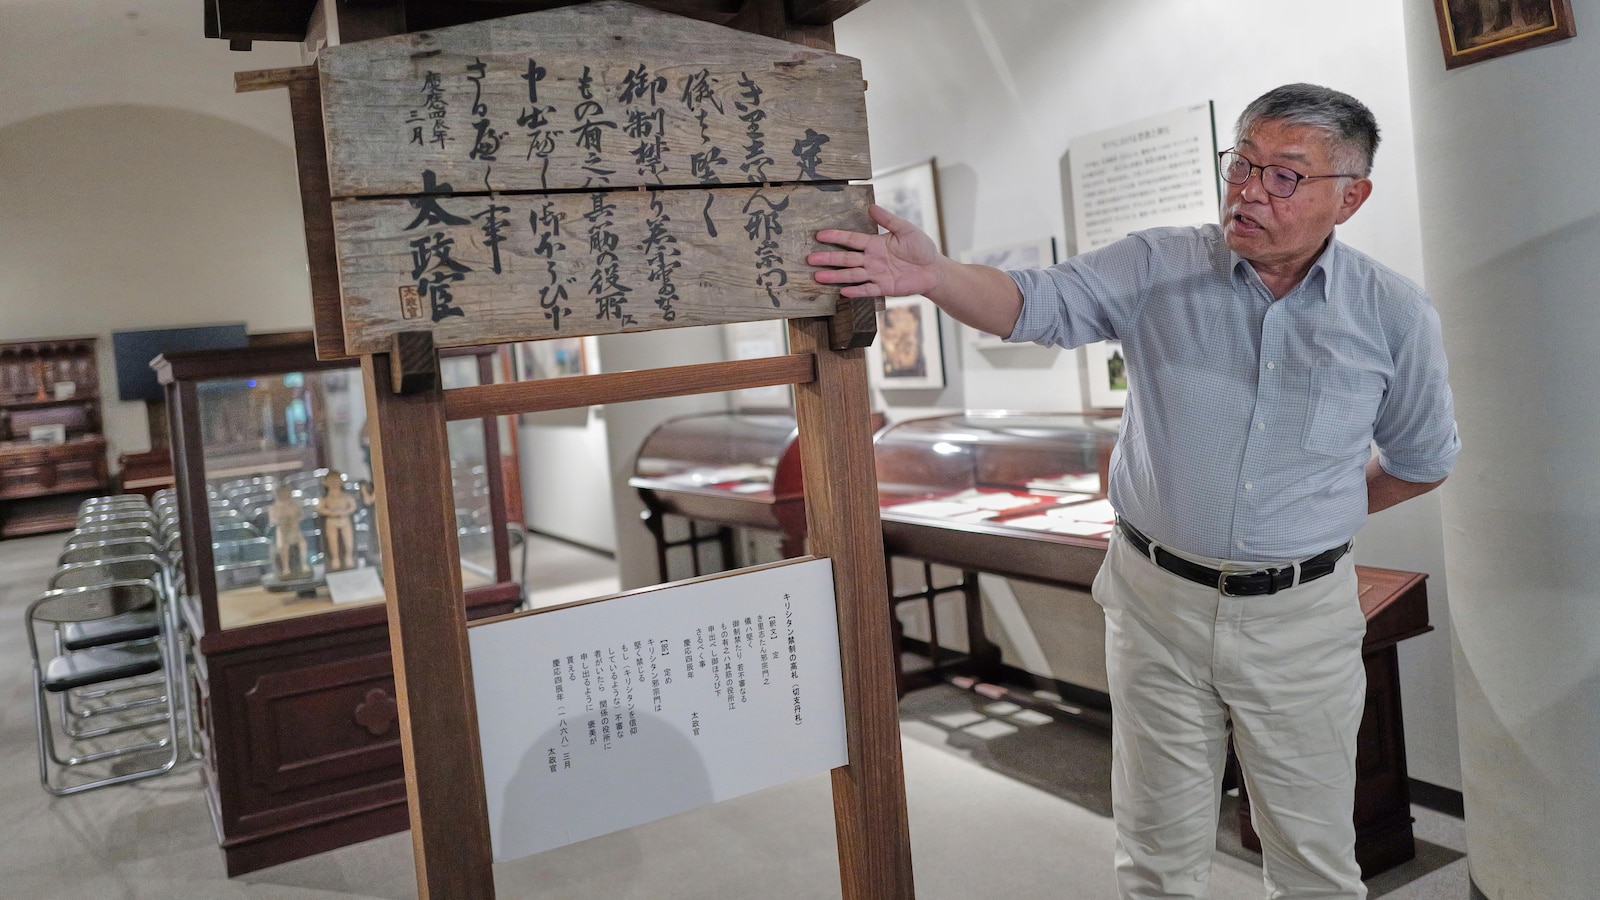 定
きり志たん邪宗門之
儀ハ堅く
御制禁たり若不審なる
もの有之ハ其筋の役所江
申出べし御ほうび下
さるべく事
慶應四辰年
三月
太政官
太政官
キリシタン禁制の高札（切支丹札）
【釈文】 定
き里志たん邪宗門之
儀ハ堅く
御制禁たり 若不審なる
もの有之ハ其筋の役所江
申出べし御ほうび下
さるべく事
慶応四辰年
太政官
【訳】 定め
キリシタン邪宗門は
堅く禁じる
もし（キリシタンを信仰
しているような）不審な
者がいたら 関係の役所に
申し出るように 褒美が
貰える
慶応四辰年（一八六八）三月
太政官